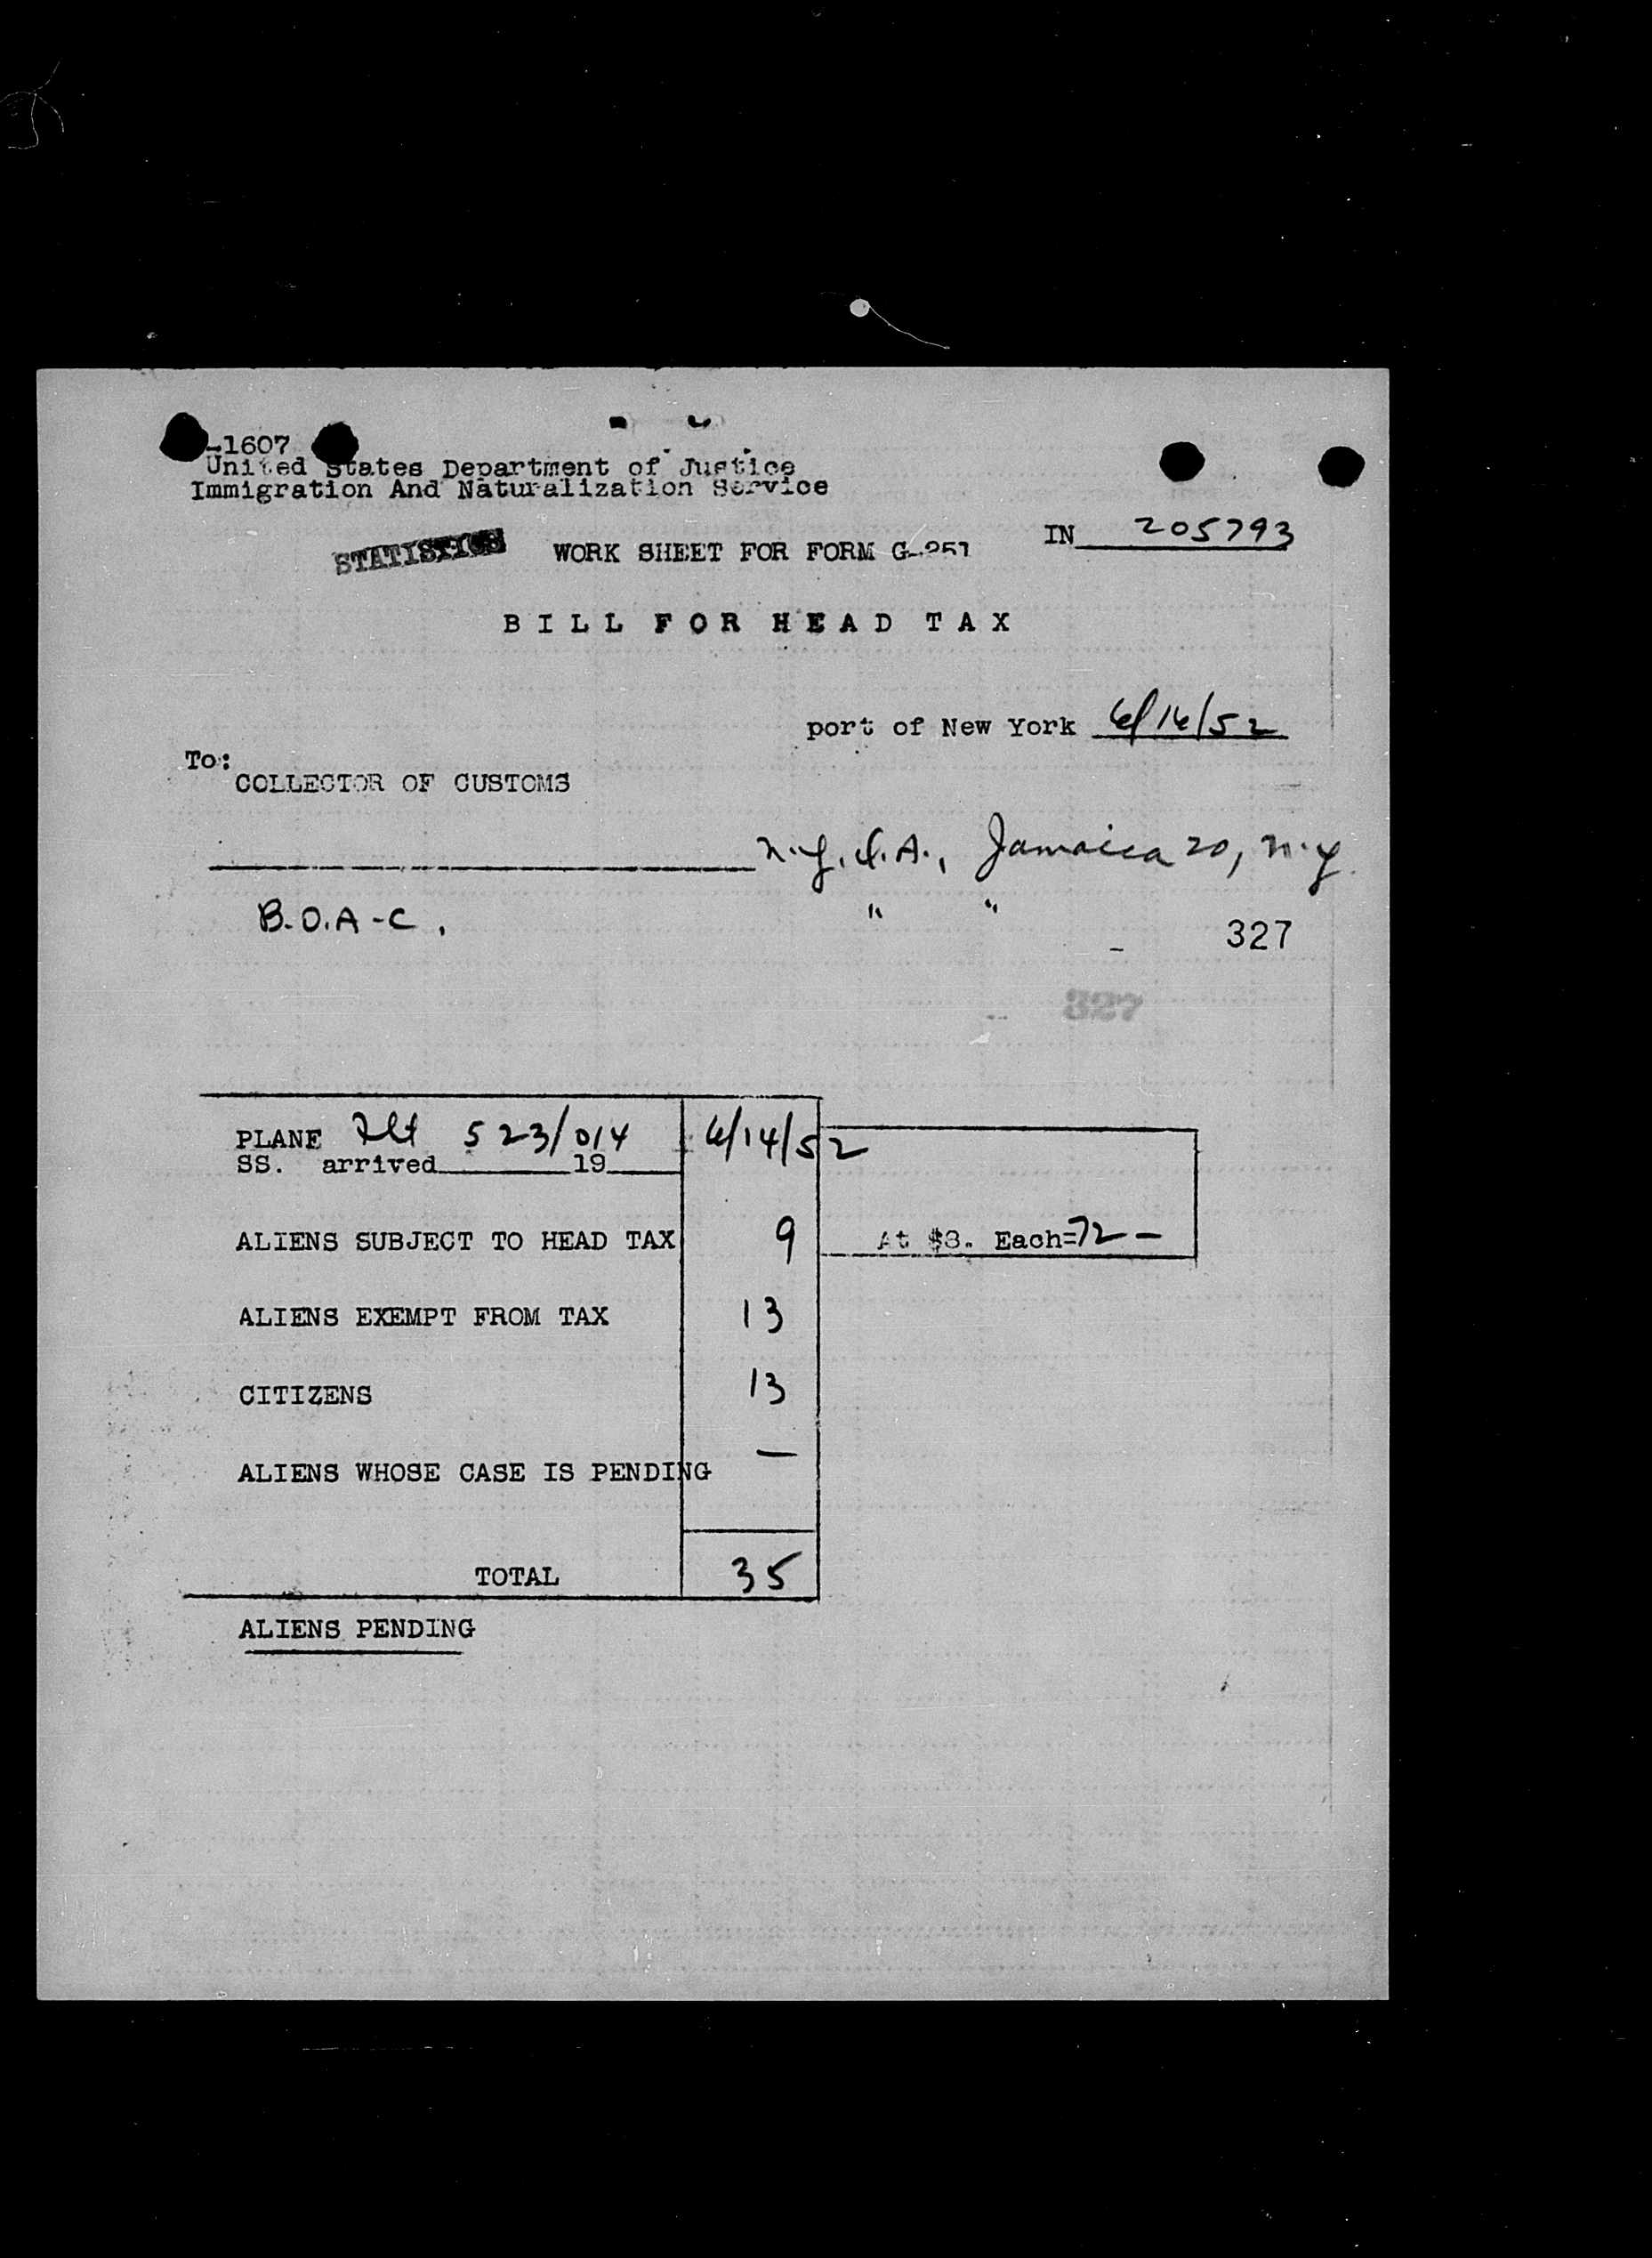 -1607
United States Department of Justice
Immigration And Naturalization Service
IN 205793
STATISTICS WORK SHEET FOR FORM G-251
BILL FOR HEAD TAX
port of New York 6/16/52
To:
COLLECTOR OF CUSTOMS
N.Y.I.A., Jamaica 20, N.Y.
B.O.A-C. " "
327
327
PLANE Flt 523/014 6/14/52
SS. arrived 19
ALIENS SUBJECT TO HEAD TAX 9 At $8. Each=72 —
ALIENS EXEMPT FROM TAX 13
CITIZENS 13
ALIENS WHOSE CASE IS PENDING —
TOTAL 35
ALIENS PENDING